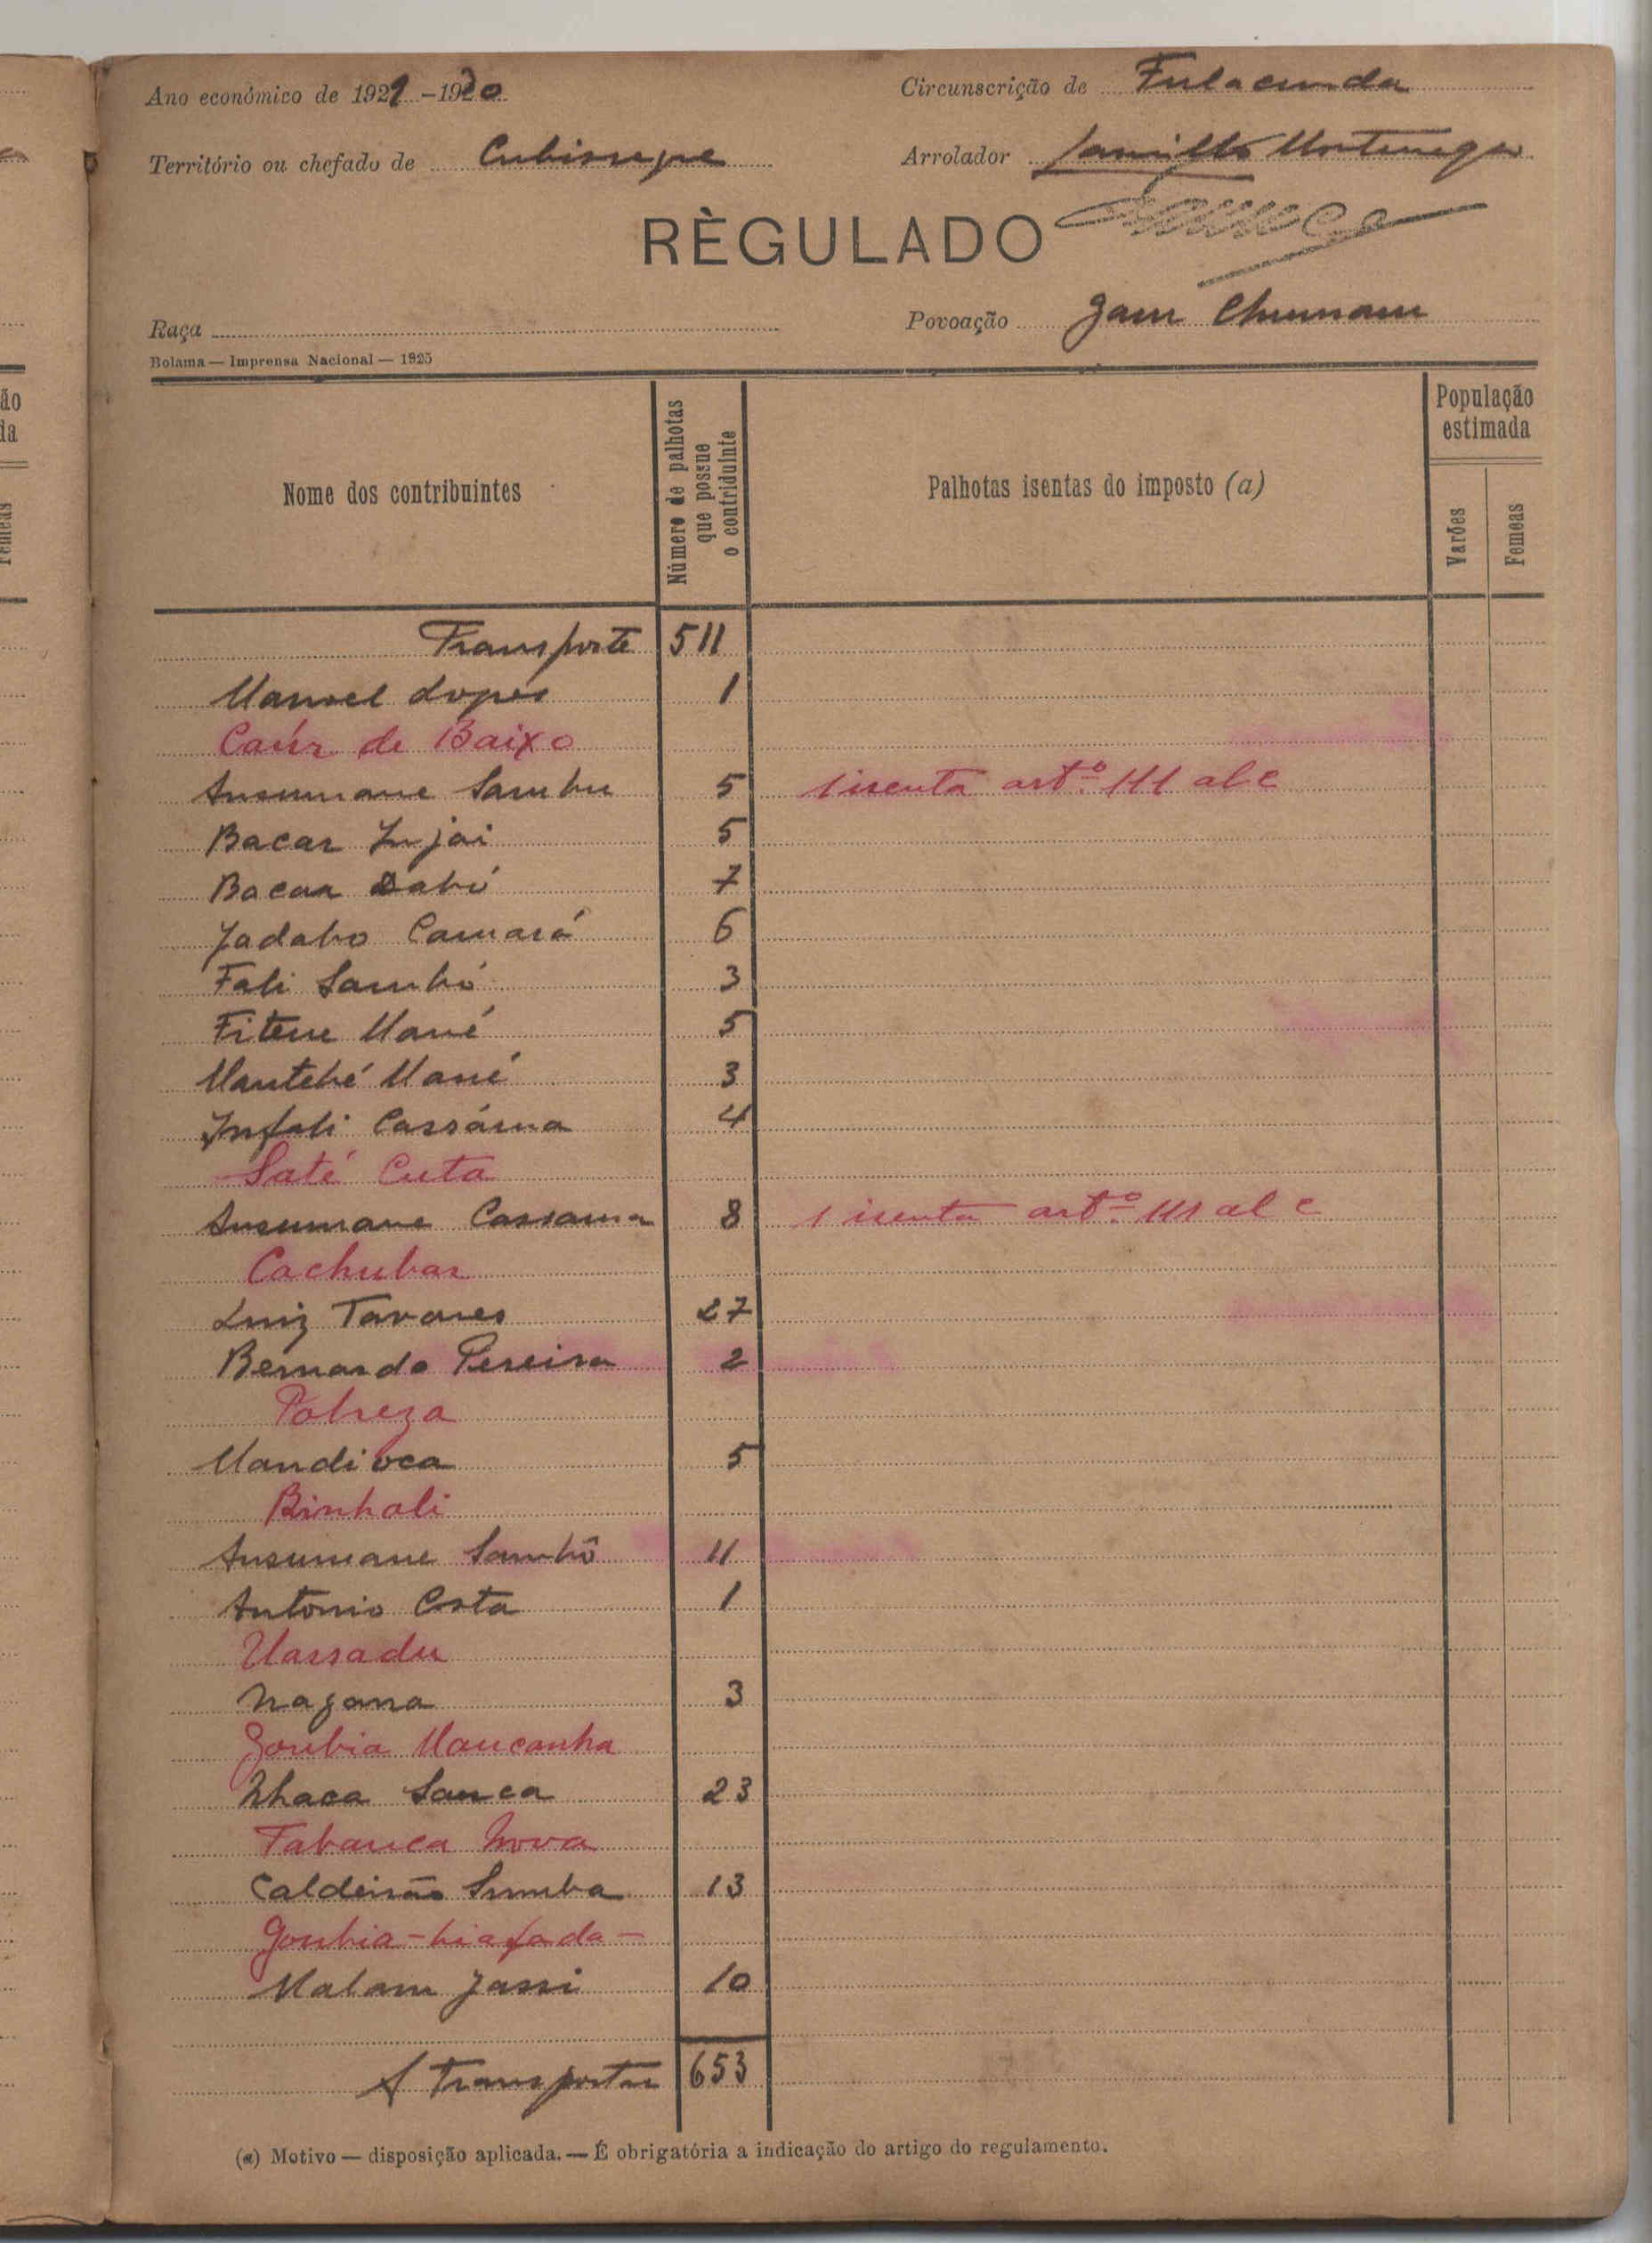 Ano económico de 1929-1930
Circunscrição de Fulacunda
Território ou chefado de Cubisseque
Arrolador Camillo Montenegro
RÈGULADO
Raça
Povoação Gam Chumam
Bolama — Imprensa Nacional — 1925
Nome dos contribuintes
Número de palhotas que possue o contriduinte
Palhotas isentas do imposto (a)
População estimada
Varões
Femeas
Transporte 511
Manoel Lopes 1
Caúr de Baixo
Ansumane Sambu 5 1 isenta artº 111 al c
Bacar Injai 5
Bacar Dabó 7
Jadabo Camará 6
Fali Sambú 3
Fitene Mané 5
Mantché Mané 3
Infali Cassáma 4
Saté Cuta
Ansumane Cassama 8 1 isenta artº 111 al c
Cachubar
Luiz Tavares 27
Bernardo Pereira 2
Pobreza
Mandioca 5
Binhali
Ansumane Sambú 11
Antonio Costa 1
Uassadu
Nagana 3
Goubia Mancanha
Nhaca Sanca 23
Tabanca Nova
Caldeirão Sumba 13
Goubia-biafada-
Malam Jassi 10
A transportar 653
(a) Motivo — disposição aplicada. — É obrigatória a indicação do artigo do regulamento.